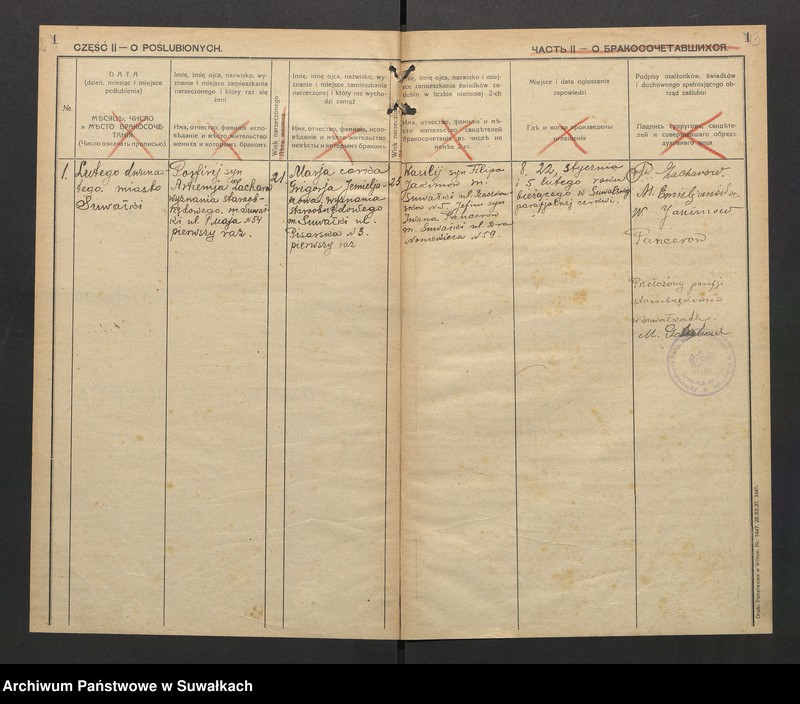 1
CZĘŚĆ II — O POŚLUBIONYCH.
ЧАСТЬ II — О БРАКОСОЧЕТАВШИХСЯ.
1
№
DATA
(dzień, miesiąc i miejsce
poślubienia)
МѢСЯЦЪ, ЧИСЛО
и МѢСТО БРАКОСОЧЕ-
ТАНІЯ
(Число означать прописью)
Imię, imię ojca, nazwisko, wy-
znanie i miejsce zamieszkania
narzeczonego i który raz się
żeni
Имя, отчество, фамилія, испо-
вѣданіе и мѣсто жительство
жениха и которымъ бракомъ
Wiek narzeczonego
Лѣта жениха
Imię, imię ojca, nazwisko, wy-
znanie i miejsce zamieszkania
narzeczonej i który raz wycho-
dzi zamąż
Имя, отчество, фамилія, испо-
вѣданіе и мѣсто жительство
невѣсты и которымъ бракомъ
Wiek narzeczonej
imię ojca, nazwisko i miej-
sce zamieszkania świadków
zaślubin w liczbie niemniej 2-ch
Имя, отчество, фамилія и мѣ-
сто жительство свидѣтелей
бракосочетанія въ числѣ не
менѣе двухъ
Miejsce i data ogłoszenia
zapowiedzi
Гдѣ и когда произведены
оглашенія
Podpisy małżonków, świadków
i duchownego spełniającego ob-
rząd zaślubin
Подпись супруговъ, свидѣте-
лей и совершившаго обрядъ
духовнаго лица
1.
Lutego dwuna-
tego miasto
Suwałki
Porfirij syn
Artemja Zacharow
wyznania staroob-
rzędowego. m. Suwał-
ki ul. 1 Maja №54
pierwszy raz.
21
Marja córka
Grigorja Jemielja-
nowa, wyznania
staroobrzędowego
m. Suwałki ul.
Pisarska №3.
pierwszy raz
25
Wasilij syn Filipa
Jakimow m.
Suwałki ul.
№5. Jefim syn
Iwana Pancerow
m. Suwałki ul.
№59.
8, 22, stycznia
i 5 lutego roku
bieżącego w Suwalskiej
parafjalnej cerkwi.
Zacharow.
M.
W.
Panceron
Przełożony parafji
staroobrzędowców
w Suwałkach.
M.
Druk. Państwowa w Wilnie. Nr. 7447. 28.XII.27. 5440.
Archiwum Państwowe w Suwałkach